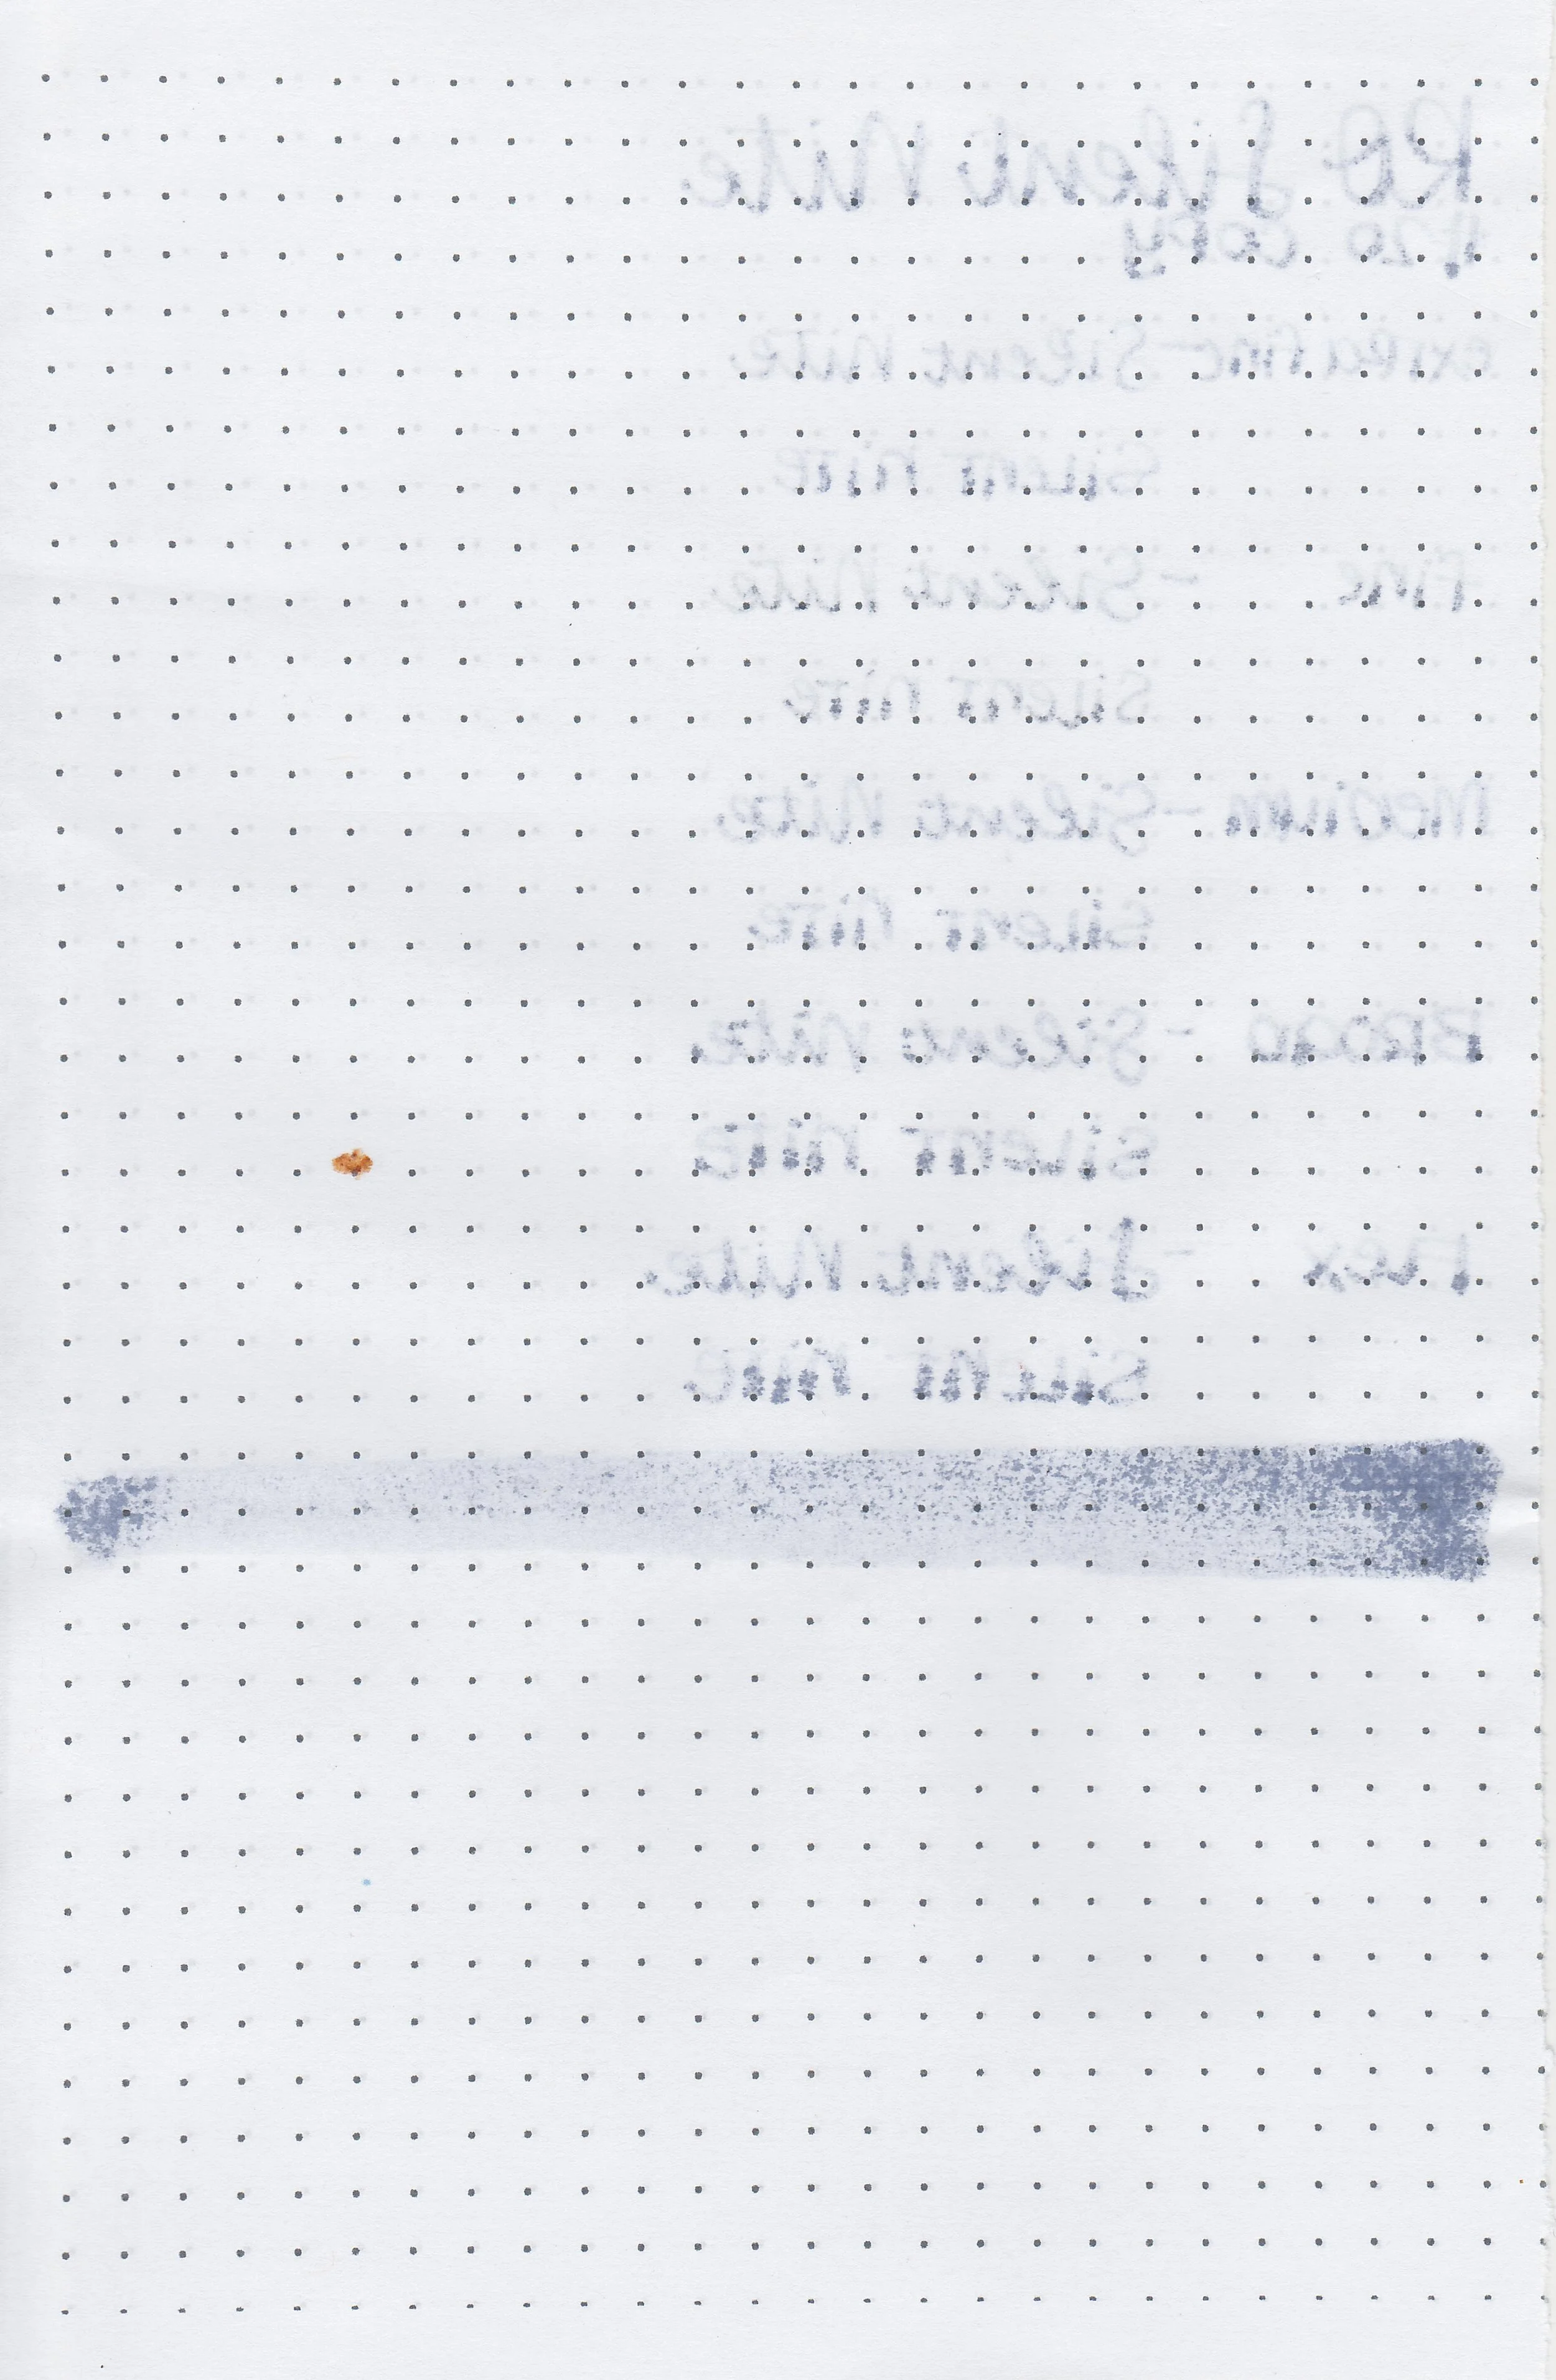 RO Silent Nite
#20 copy
extra fine - Silent Nite
Silent nite
Fine - Silent Nite
Silent nite
Medium - Silent Nite
Silent nite
Broad - Silent Nite
Silent nite
Flex - Silent Nite
Silent nite